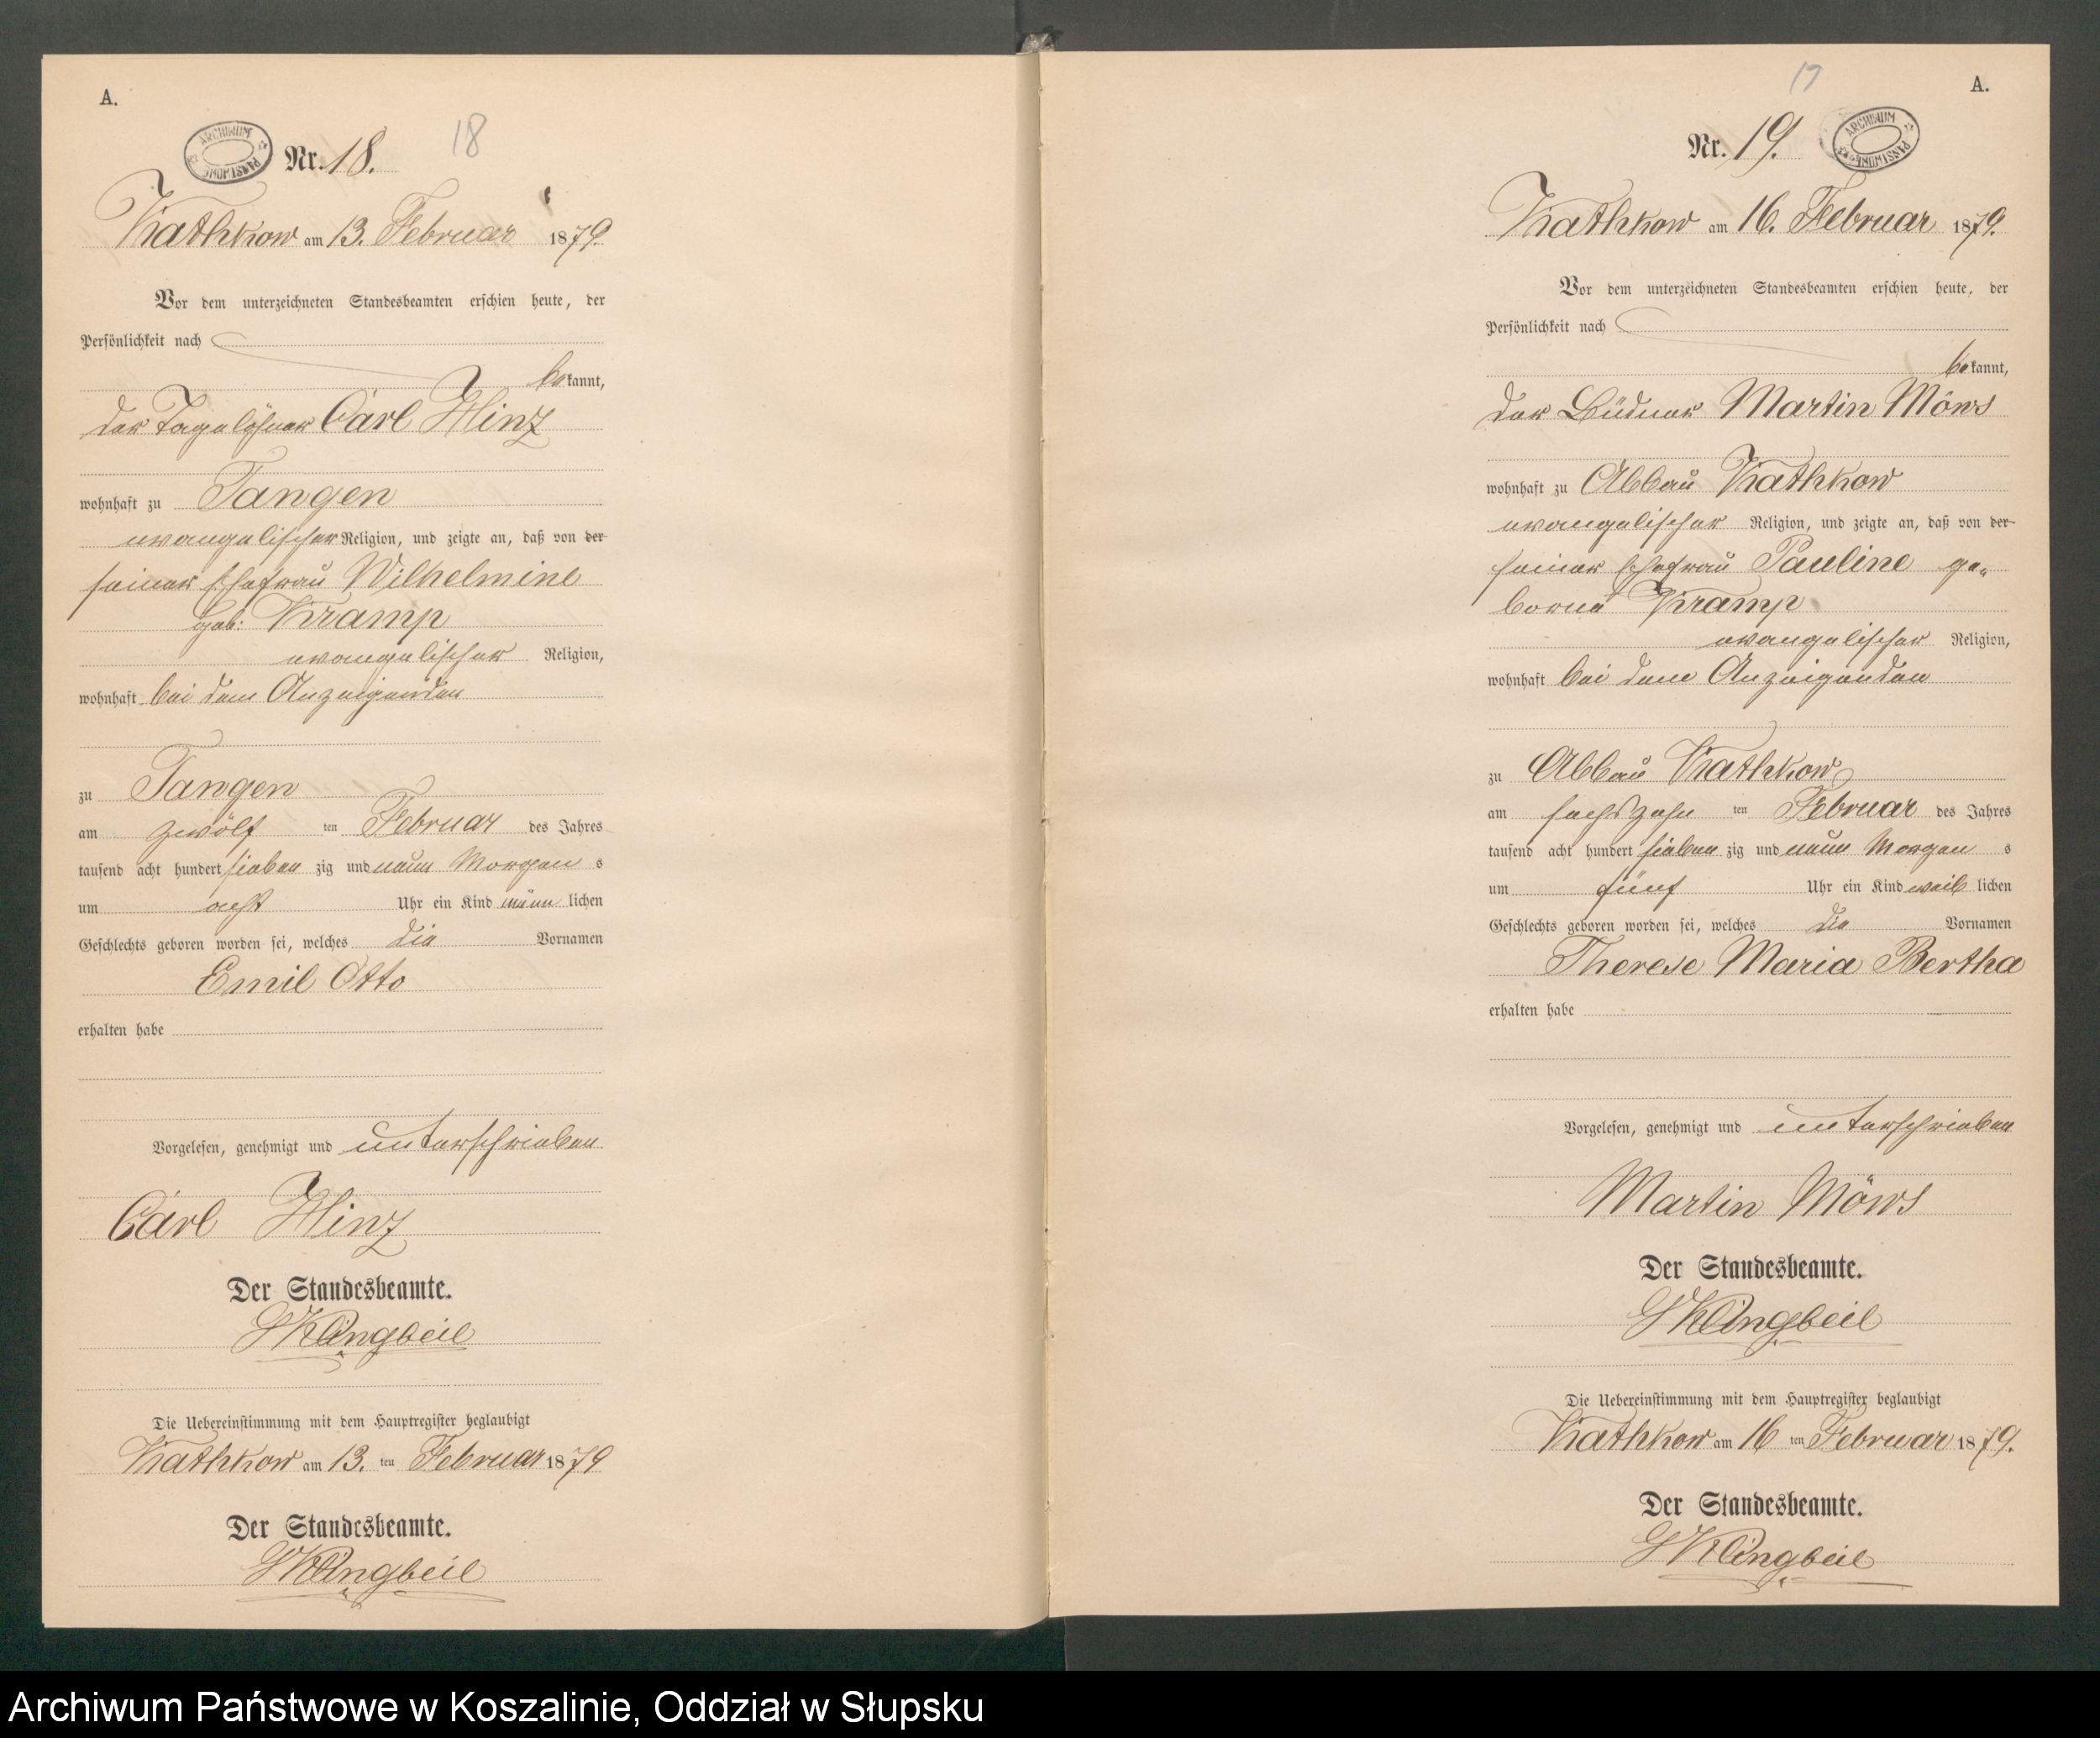 A.
ARCHIWUM PAŃSTWOWE
Nr. 18.
18
Kathkow am 13. Februar 1879.
Vor dem unterzeichneten Standesbeamten erschien heute, der
Persönlichkeit nach
bekannt,
der Tagelöhner Carl Hinz
wohnhaft zu Jangen
evangelischer Religion, und zeigte an, daß von der
seiner Ehefrau Wilhelmine
geb: Kramp
evangelischer Religion,
wohnhaft bei dem Anzeigenden
zu Jangen
am zwölf ten Februar des Jahres
tausend acht hundert sieben zig und neun Morgens
um acht Uhr ein Kind männlichen
Geschlechts geboren worden sei, welches die Vornamen
Emil Otto
erhalten habe
Vorgelesen, genehmigt und unterschrieben
Carl Hinz
Der Standesbeamte.
Klingbeil
Die Uebereinstimmung mit dem Hauptregister beglaubigt
Kathkow am 13. ten Februar 1879
Der Standesbeamte.
Klingbeil
A.
Nr. 19.
ARCHIWUM PAŃSTWOWE
Kathkow am 16. Februar 1879.
Vor dem unterzeichneten Standesbeamten erschien heute, der
Persönlichkeit nach
bekannt,
der Büdner Martin Möws
wohnhaft zu Abbau Kathkow
evangelischer Religion, und zeigte an, daß von der
seiner Ehefrau Pauline ge„
borne Kramp
evangelischer Religion,
wohnhaft bei dem Anzeigenden
zu Abbau Kathkow
am sechszehn ten Februar des Jahres
tausend acht hundert sieben zig und neun Morgens
um fünf Uhr ein Kind weiblichen
Geschlechts geboren worden sei, welches die Vornamen
Therese Maria Bertha
erhalten habe
Vorgelesen, genehmigt und unterschrieben
Martin Möws
Der Standesbeamte.
Klingbeil
Die Uebereinstimmung mit dem Hauptregister beglaubigt
Kathkow am 16 ten Februar 1879.
Der Standesbeamte.
Klingbeil
Archiwum Państwowe w Koszalinie, Oddział w Słupsku